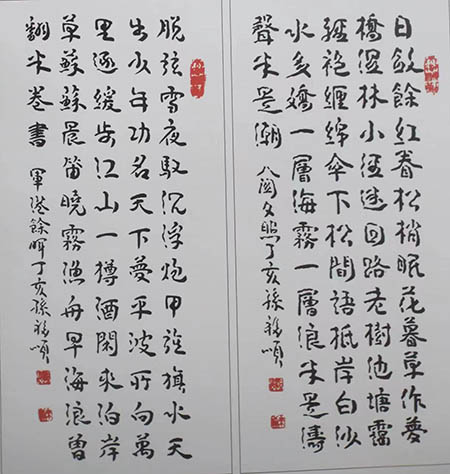 日斂餘紅眷松梢眠花暮草作夢
橋溼林小徑迷回路老樹池塘靄
經袍纏綿傘下松間語抵岸白沙
水多嬌一層海霧一層浪半是濤
聲半是潮 八關夕照丁亥孫福順
脫弦雪夜馭沉浮炮甲旌旗水天
出少年功名天下夢平波所向萬
里逐緩步江山一樽酒閑來泊岸
草蘇蘇晨笛曉霧漁舟早海浪曾
翻半卷書 軍港餘暉丁亥孫福順